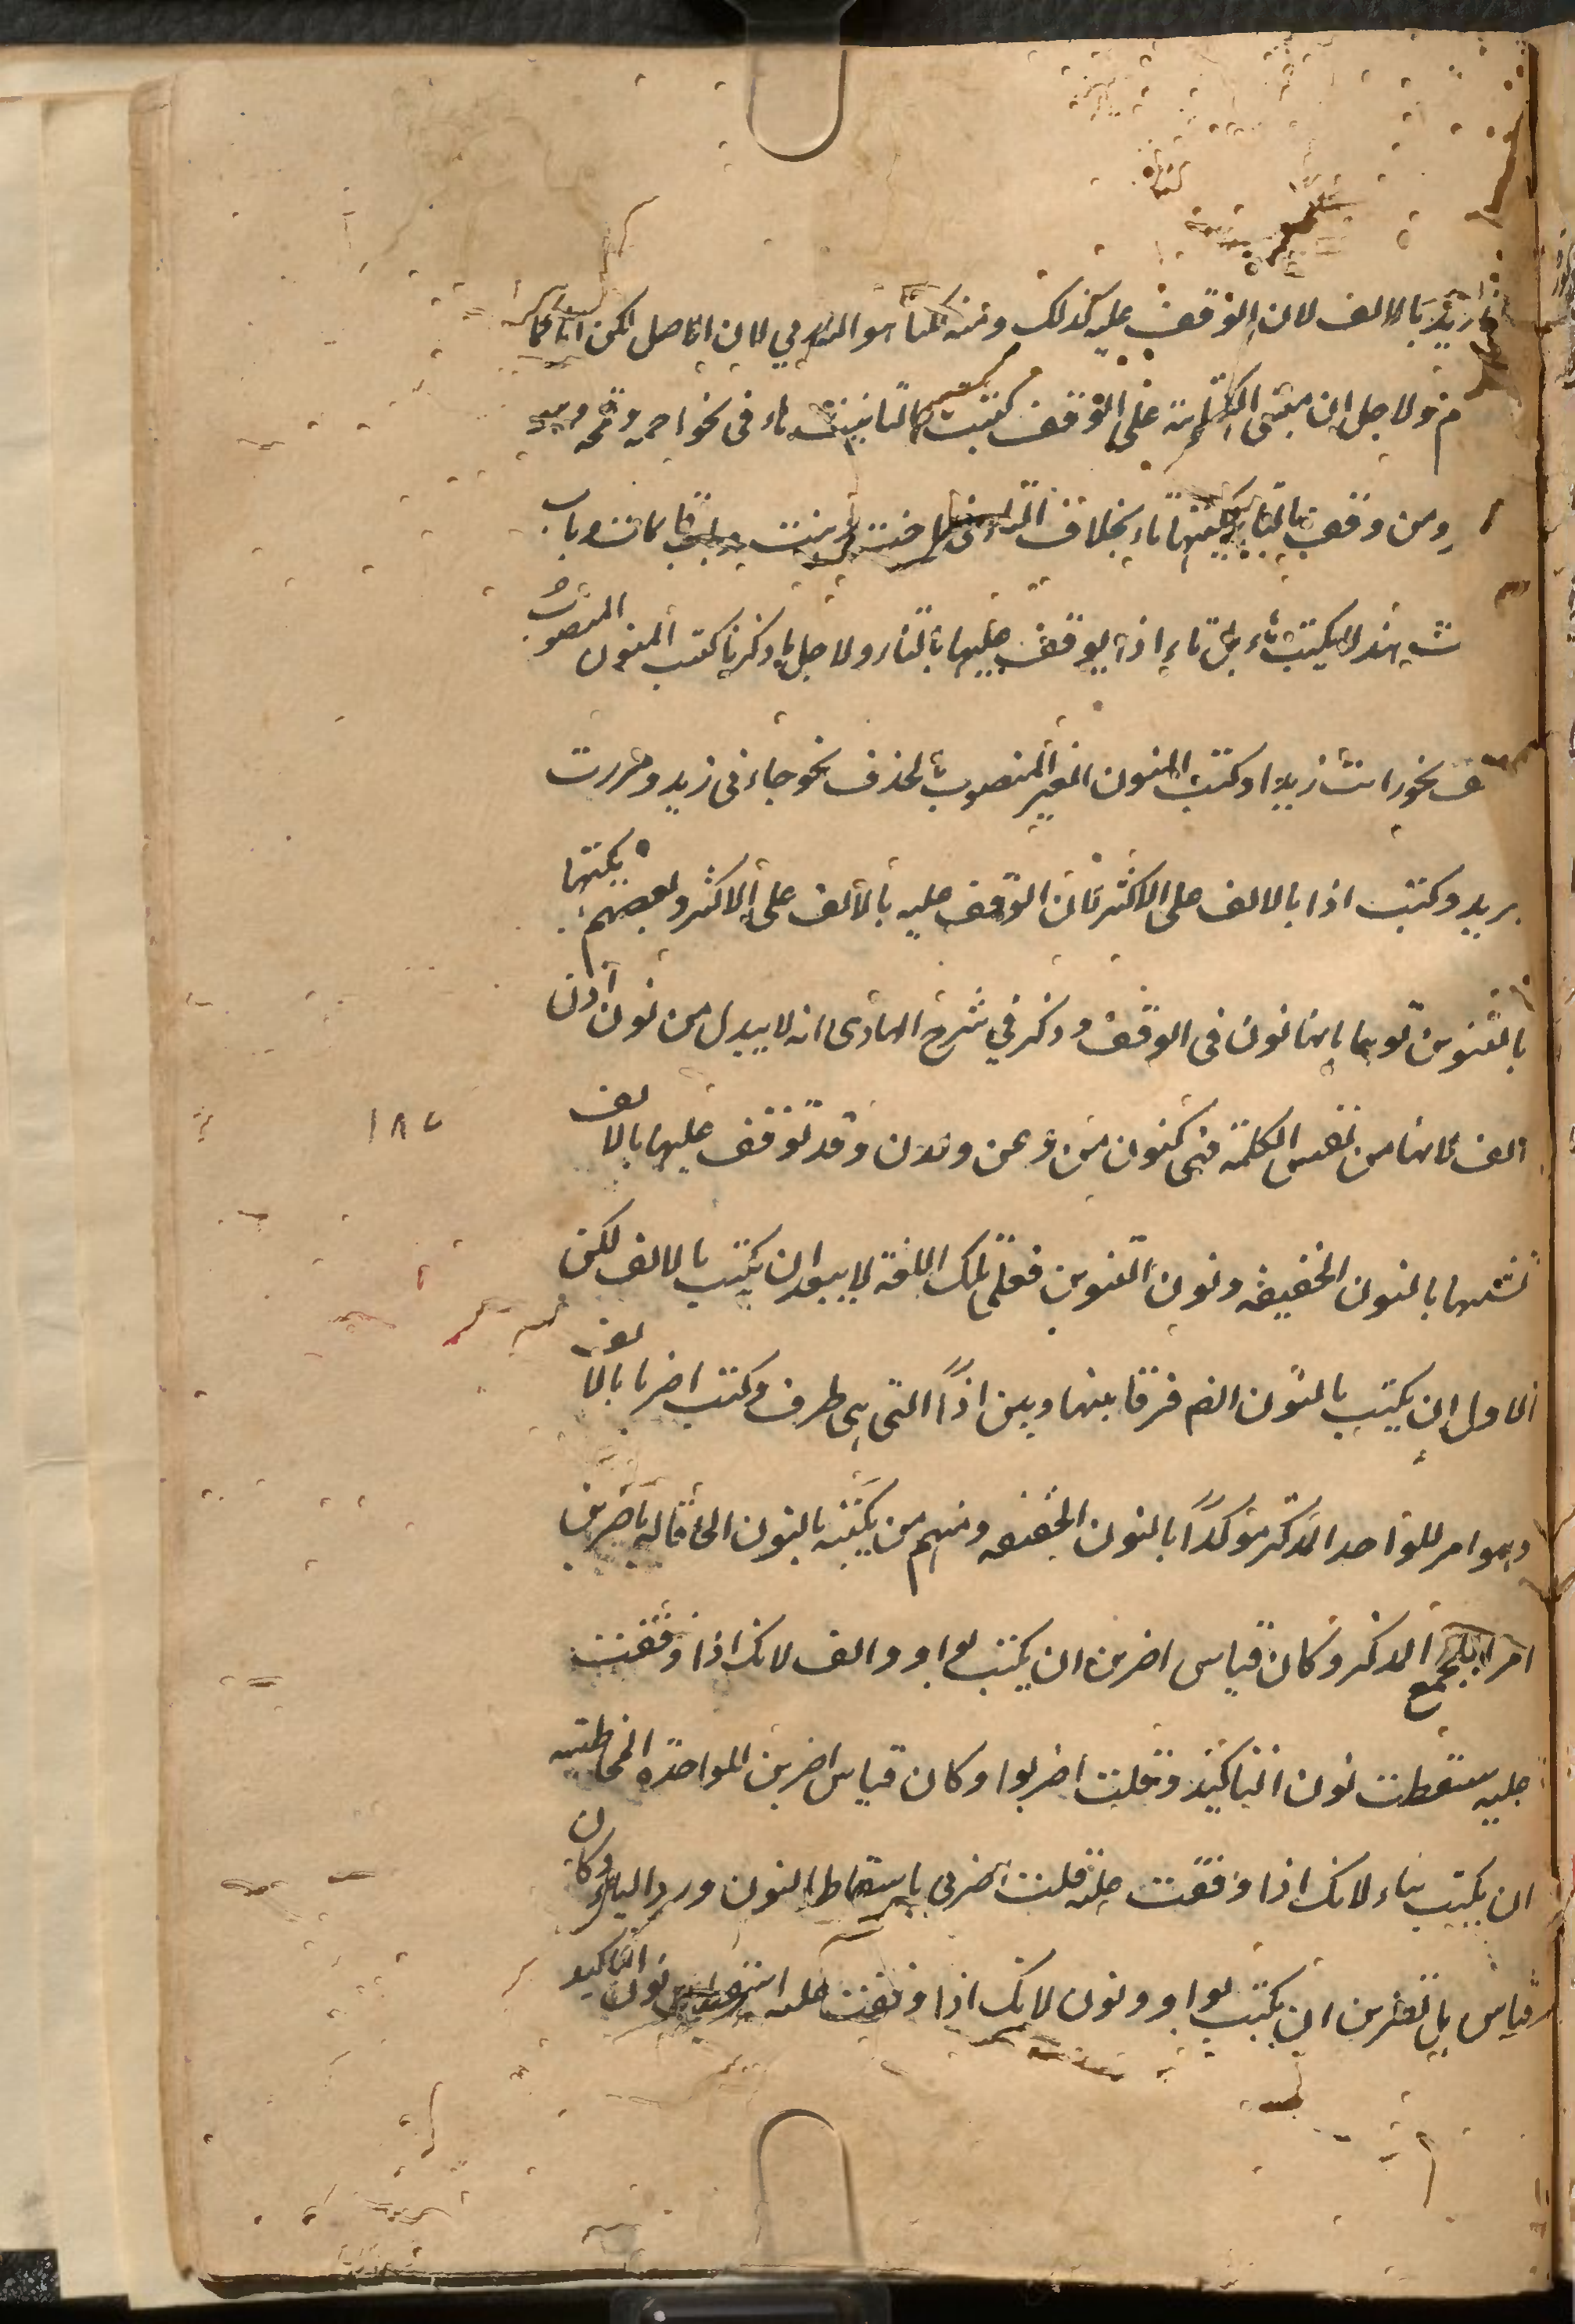 انا زيد بالالف لان الوقف عليه كذلك ومنه لكنا هو الله ربي لان اصل لكن انا
م ولاجل ان مبنى الكتابة على الوقف كتبت تاء التانيث هاء فى نحو رحمة وقمحة
ومن وقف بالتاء يكتبها تاء بخلاف التاء فى اخت وبنت وباب قائمات وباب
ت هند لا يكتب هاء بل تاء اذ يوقف عليها بالتاء ولاجل ما ذكرنا كتب المنون المنصوب
ف نحو رايت زيدا وكتب المنون الغير المنصوب بالحذف نحو جاءنى زيد ومررت
بزيد وكتب اذا بالالف على الاكثر لان الوقف عليه بالألف على الاكثر وبعضهم يكتبها
بالنون توهما بانها نون فى الوقف وذكر في شرح الهادى انه لا يبدل من نون اذن
الف لانها من نفس الكلمة فهى كنون من وعن ولدن وقد توقف عليها بالالف
لشبهها بالنون الخفيفة ونون التنوين فعلى تلك اللغة لا يبعد ان يكتب بالالف لكن
الاول ان يكتب بالنون الف فرقا بينها وبين اذًا التى هى ظرف وكتب اضربا بالالف
وهو امر للواحد المذكر مؤكدًا بالنون الخفيفة ومنهم من يكتبه بالنون الحاقا له باضربن
امرا لجمع المذكر وكان قياس اضربن ان يكتب بواو والف لانك اذا وقفت
عليه سقطت نون التاكيد وقلت اضربوا وكان قياس اضربن للواحدة المخاطبة
ان يكتب بياء لانك اذا وقفت عليه قلت اضربى باسقاط النون ورد الياء وكان
قياس هل تضربن ان يكتب بواو ونون لانك اذا وقفت عليه اسقطت نون التاكيد
١٨٥